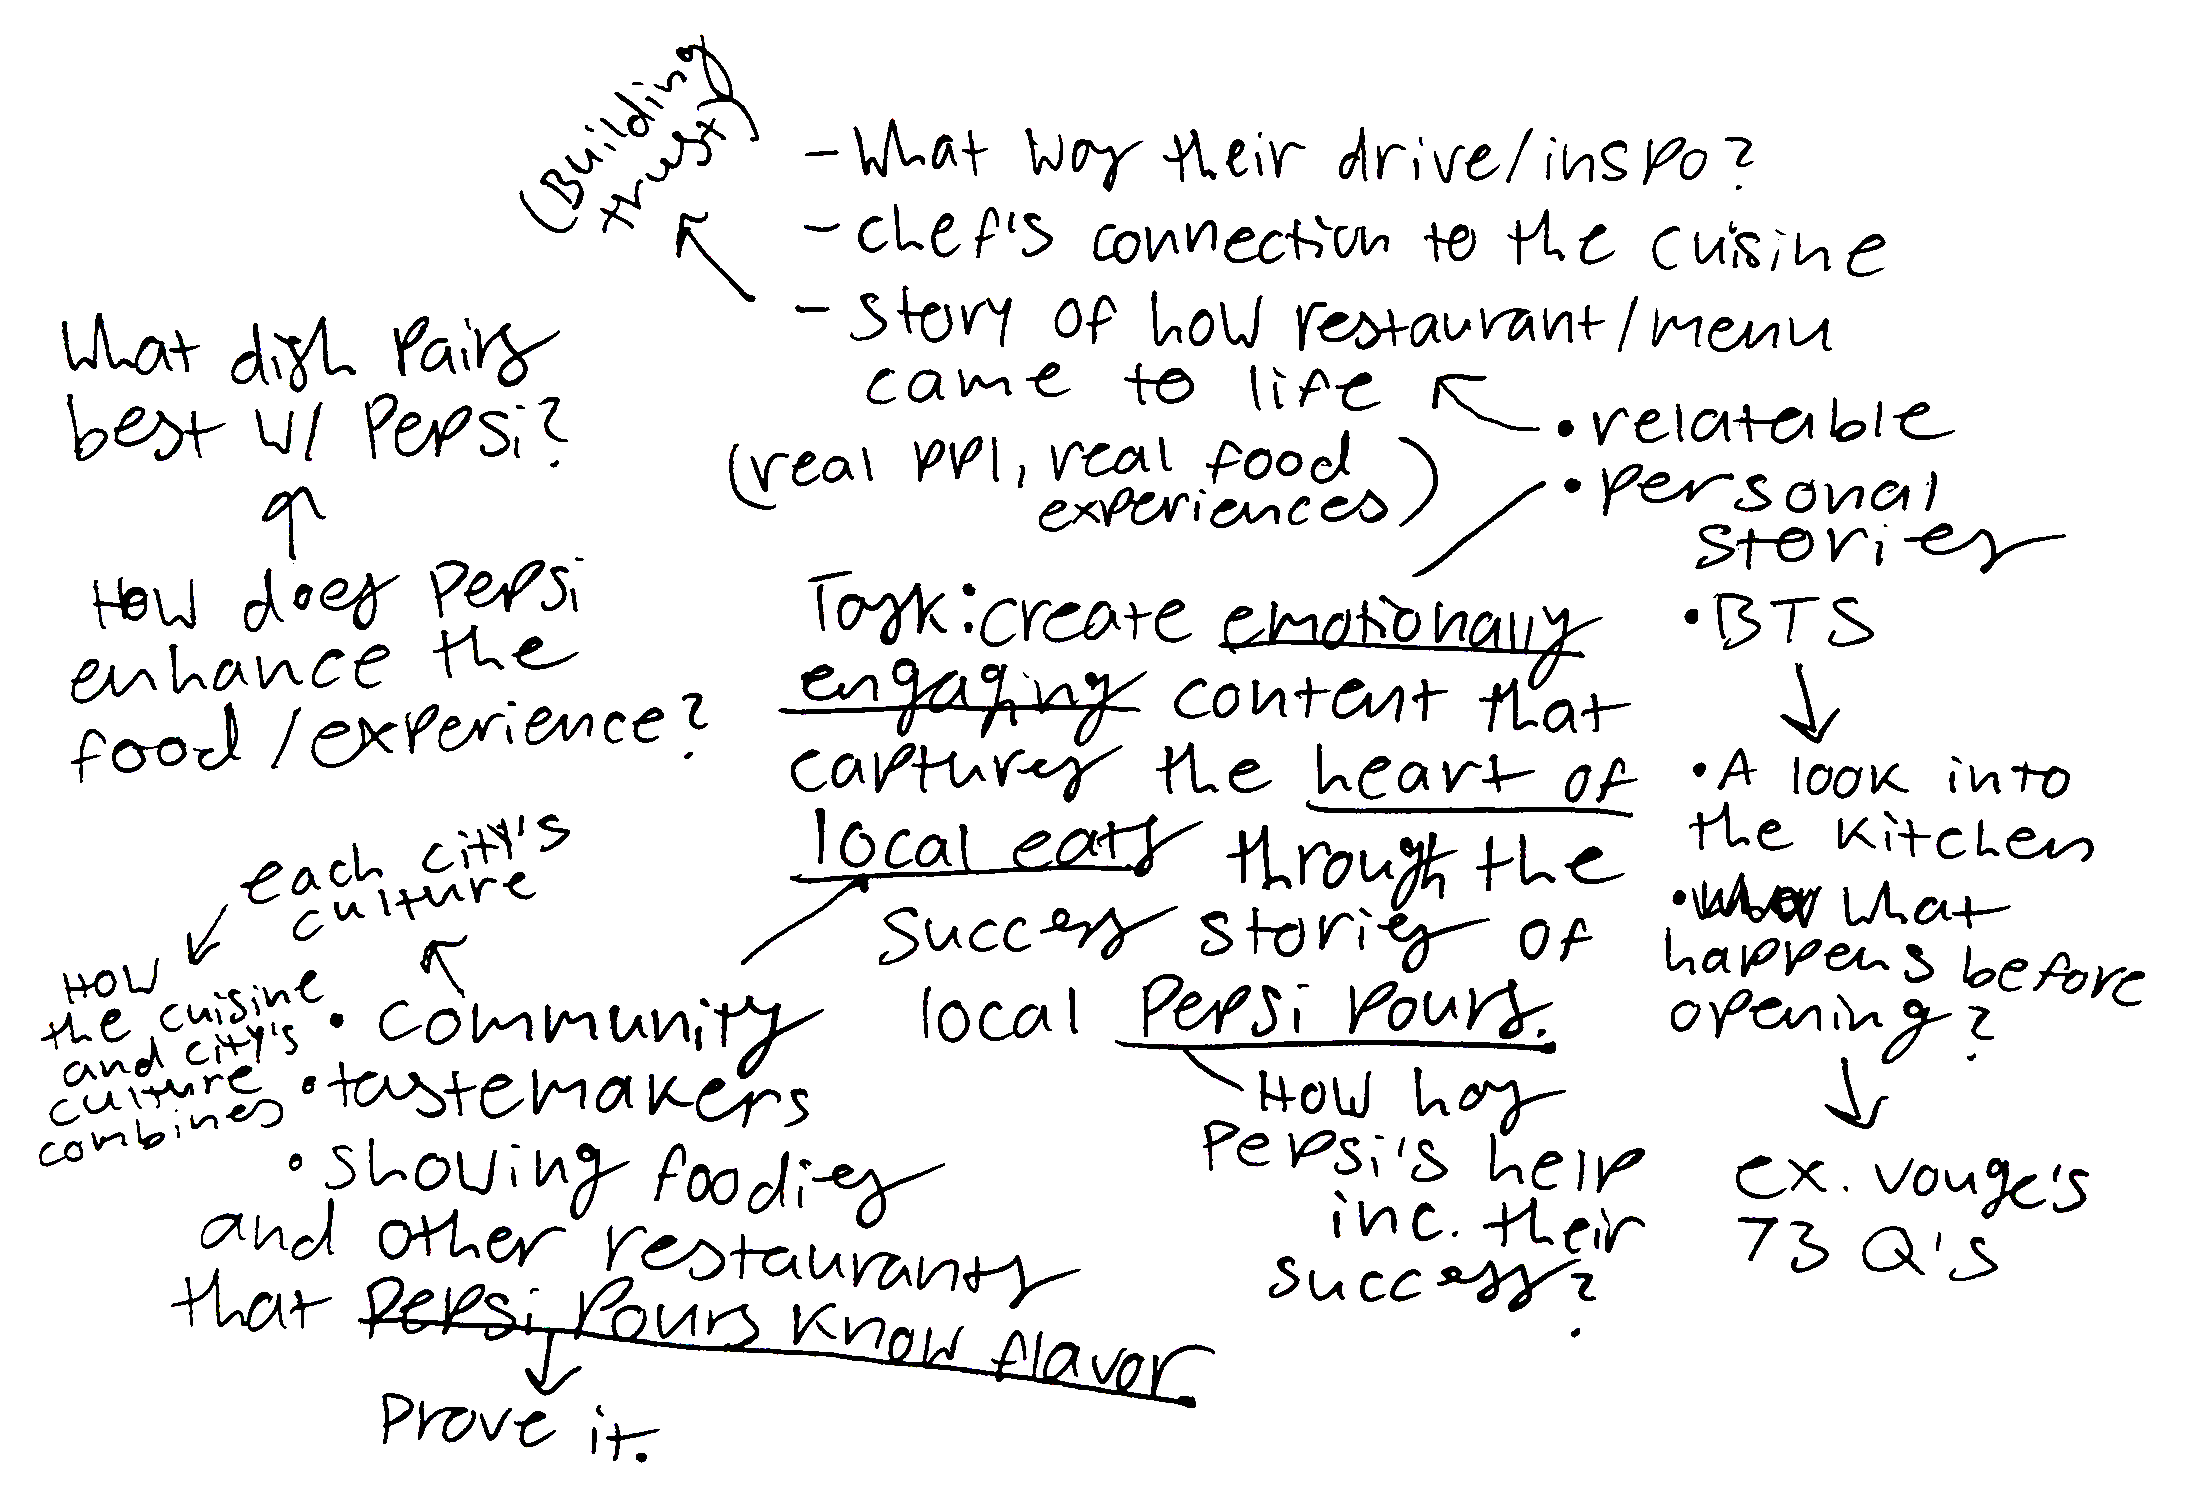 (Building
trust)
- What was their drive/inspo?
- chef's connection to the cuisine
- Story of how restaurant/menu
came to life
(real ppl, real food
experiences)
• relatable
• personal
stories
• BTS
• A look into
the kitchen
• What
happens before
opening?
ex. vouge's
73 Q's
What dish pairs
best w/ Pepsi?
How does Pepsi
enhance the
food/experience?
Task: create emotionally
engaging content that
captures the heart of
local eats through the
success stories of
local Pepsi Pours.
How has
Pepsi's help
inc. their
success?
each city's
culture
How
the cuisine
and city's
culture
combines
• community
• tastemakers
• showing foodies
and other restaurants
that Pepsi Pours know flavor.
Prove it.